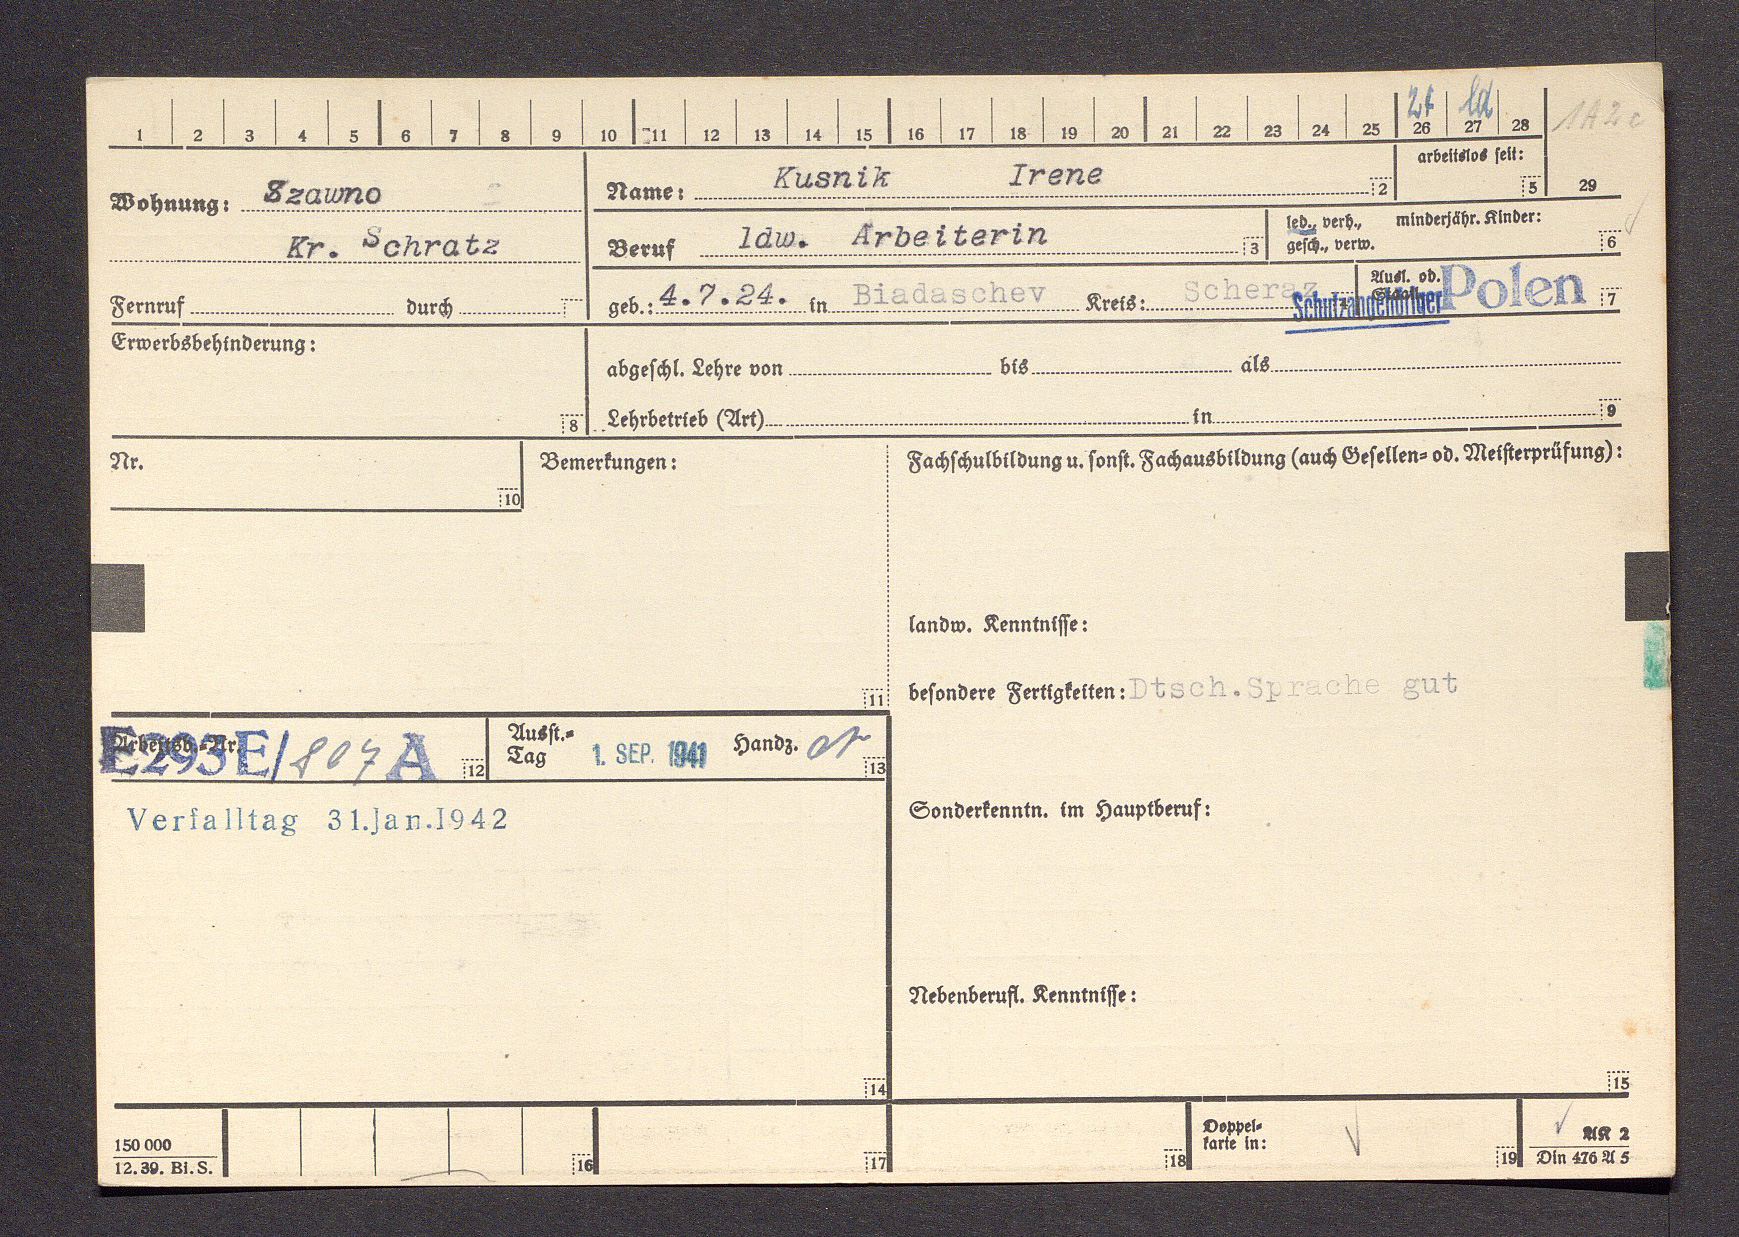 1 2 3 4 5 6 7 8 9 10 11 12 13 14 15 16 17 18 19 20 21 22 23 24 25 26 27 28
1A2c
arbeitslos seit: 5 29
Wohnung: Szawno
Kr. Schratz
Name: Kusnik Irene 2
Beruf ldw. Arbeiterin 3
led., verh., minderjähr. Kinder:
gesch., verw. 6
Fernruf durch
geb.: 4.7.24. in Biadaschev Kreis: Scheraz 4
Ausl. od.
Staatl. Schutzangehöriger Polen 7
Erwerbsbehinderung: 8
abgeschl. Lehre von bis als
Lehrbetrieb (Art) in 9
Nr. 10
Bemerkungen: 11
Fachschulbildung u. sonst. Fachausbildung (auch Gesellen- od. Meisterprüfung):
landw. Kenntnisse:
besondere Fertigkeiten: Dtsch.Sprache gut
Arbeitsb.-Nr. E293E/807A 12
Ausst.-
Tag 1. SEP. 1941 Handz. 13
Verfalltag 31.Jan.1942
14
Sonderkenntn. im Hauptberuf:
Nebenberufl. Kenntnisse:
15
150 000
12. 39. Bi. S.
16 17 18
Doppel-
karte in: 19
AK 2
Din 476 A 5